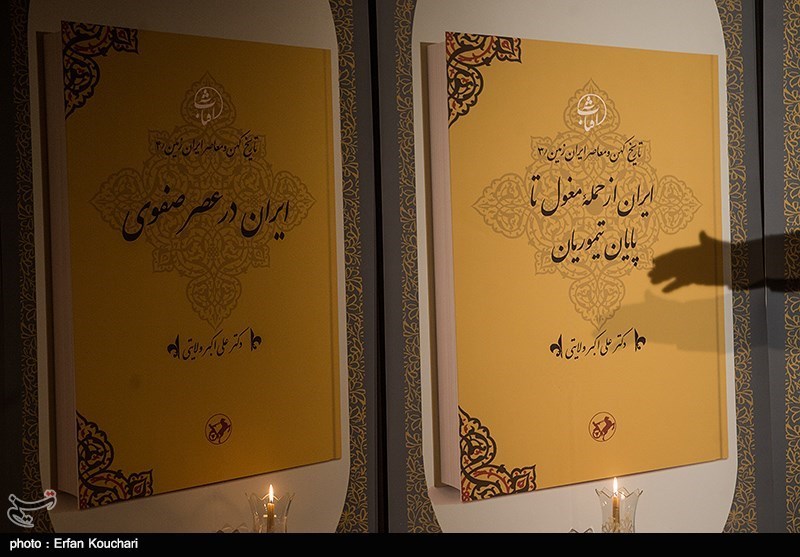 تاریخ کهن و معاصر ایران زمین (۳
ایران از حملهٔ مغول تا
پایان تیموریان
دکتر علی اکبر ولایتی
تاریخ کهن و معاصر ایران زمین (۴
ایران در عصر صفوی
دکتر علی اکبر ولایتی
photo : Erfan Kouchari